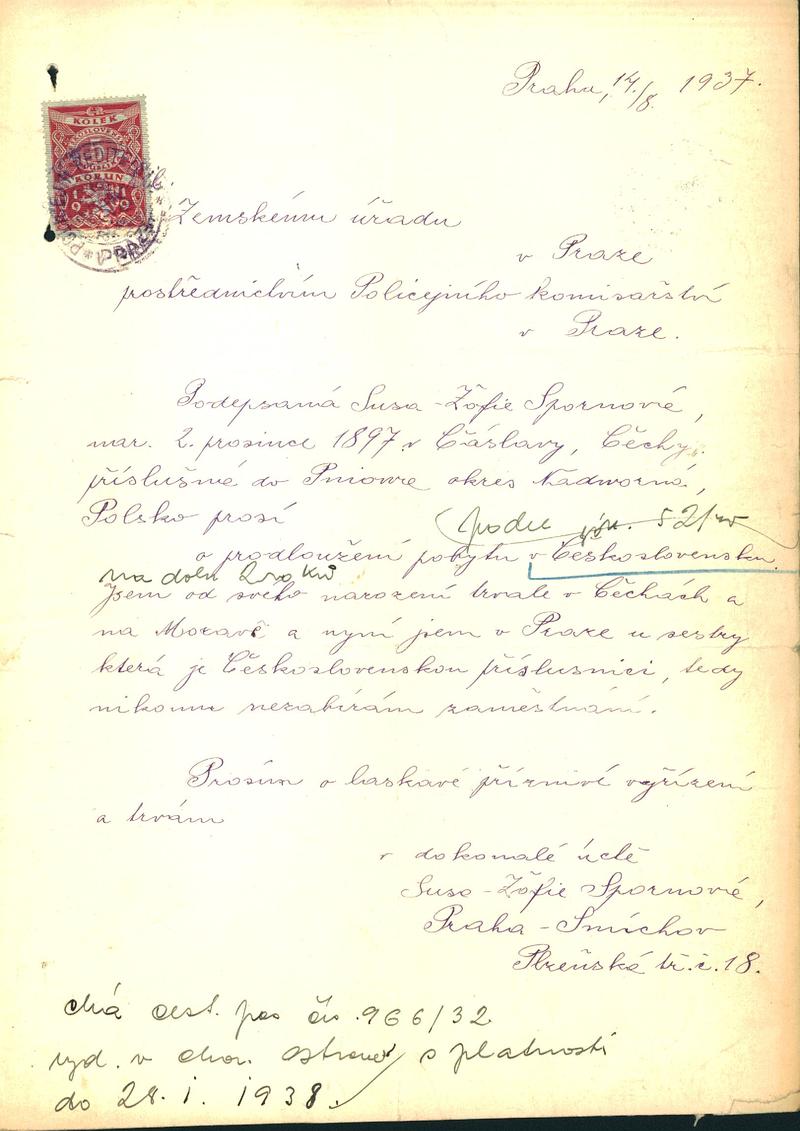 Praha, 14./8. 1937.
KOLEK
KORUN
Zemskému úřadu
v Praze
prostřednictvím Policejního komisařství
v Praze.
Podepsaná Susa-Žofie Spornové,
nar. 2. prosince 1897 v Čáslavy, Čechy,
příslušné do Pniowe okres Nadworná,
Polsko prosí
podle § 21
o prodloužení pobytu v Československu.
na dobu 2 roků
Jsem od svého narození trvale v Čechách a
na Moravě a nyní jsem v Praze u sestry
která je Československou příslusnicí, tedy
nikomu nezabírám zaměstnání.
Prosím o laskavé příznivé vyřízení
a trvám
v dokonalé úctě
Susa-Žofie Spornové,
Praha-Smíchov
Plzeňská tř.č. 18.
má cest. pas čís. 966/32
vyd. v mor. Ostravě s platností
do 28. I. 1938.